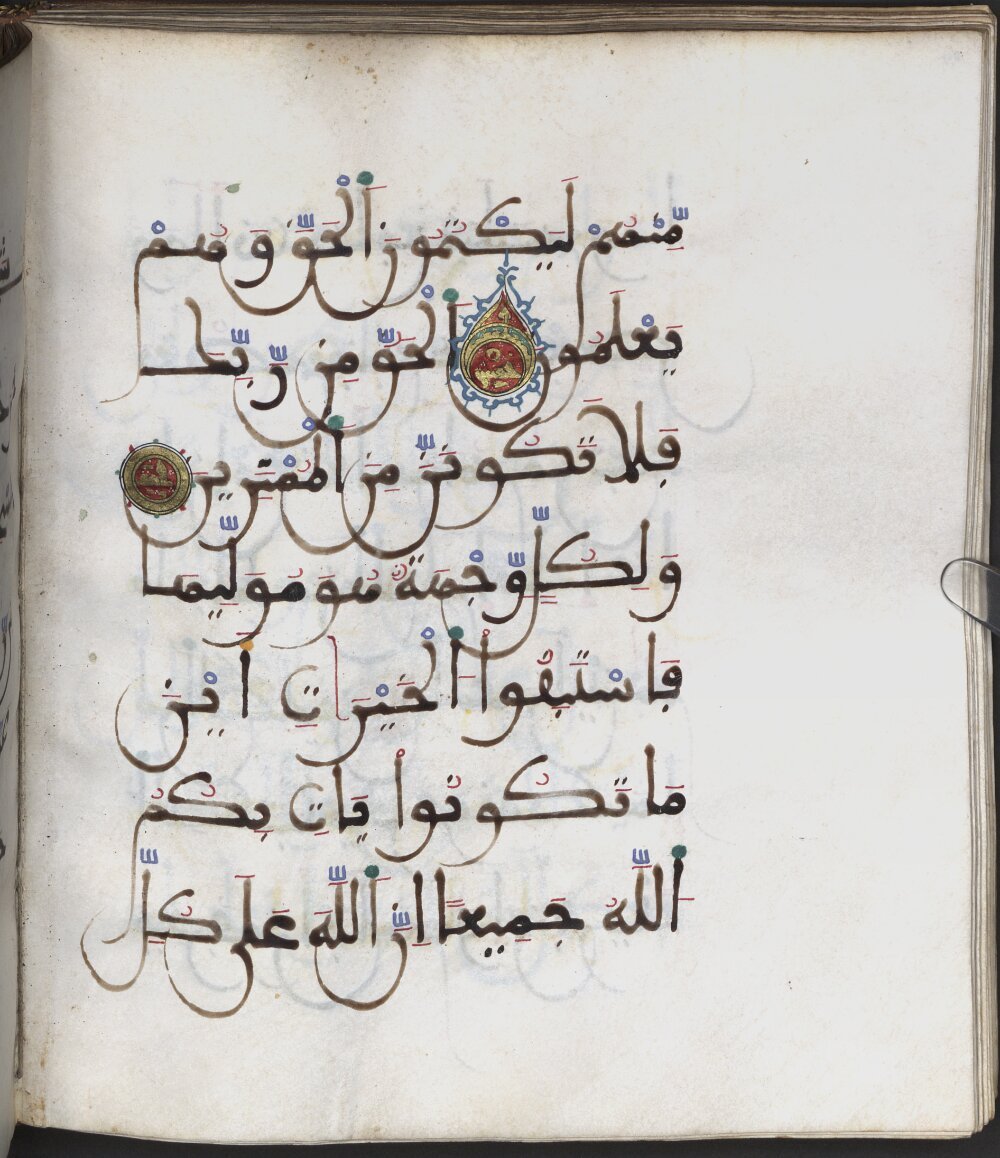 مِّنْهُمْ لَيَكْتُمُونَ اَ۬لْحَقَّ وَهُمْ
يَعْلَمُونَ اَ۬لْحَقُّ مِن رَّبِّكَ
فَلَا تَكُونَنَّ مِنَ اَ۬لْمُمْتَرِينَ
وَلِكُلّٖ وِّجْهَةٌ هُوَ مُوَلِّيهَا
فَاسْتَبِقُوا اُ۬لْخَيْرَٰتِ أَيْنَ
مَا تَكُونُوا يَاتِ بِكُمُ
اُ۬للَّهُ جَمِيعًا اِنَّ اَ۬للَّهَ عَلَىٰ كُلِّ